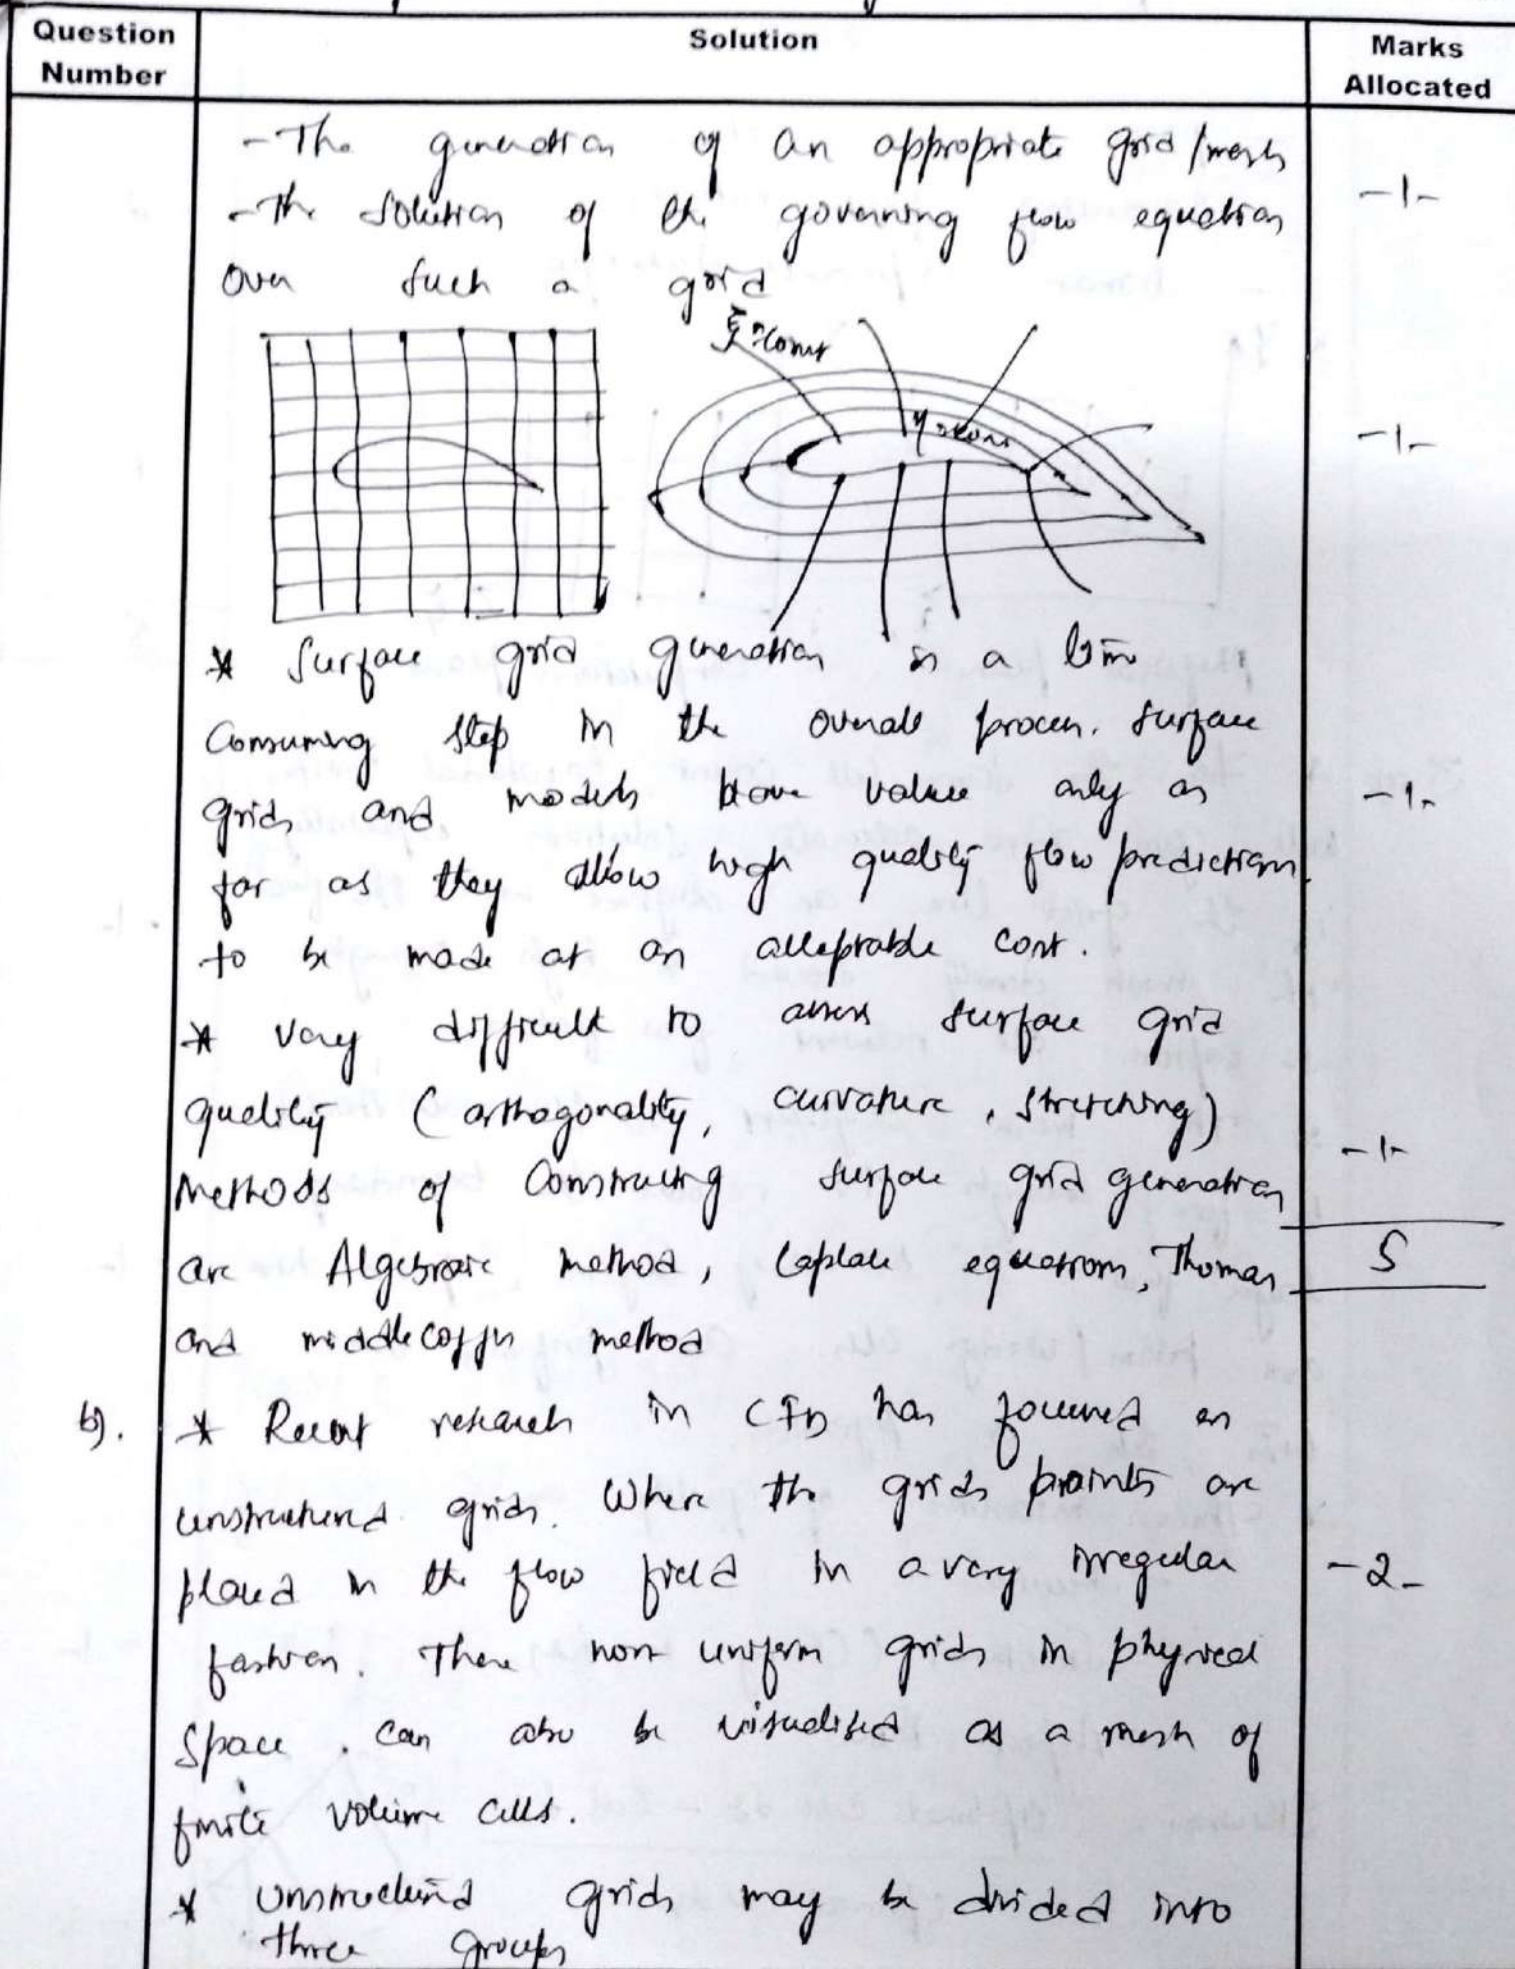 Question Number
Solution
Marks Allocated
- The generation of an appropriate grid/mesh
-1-
- The solution of the governing flow equation
over such a grid
ξ = const
η = const
-1-
* Surface grid generation is a time
consuming step in the overall process. Surface
grids and models have value only as
-1-
far as they allow high quality flow predictions
to be made at an acceptable cost.
* Very difficult to assess surface grid
quality (orthogonality, curvature, stretching)
-1-
Methods of constructing surface grid generation
are Algebraic method, Laplace equations, Thomas
5
and middlecoff method
b). * Recent research in CFD has focused on
unstructured grids. Where the grids points are
placed in the flow field in a very irregular
-2-
fashion. These non uniform grids in physical
space. can also be visualised as a mesh of
finite volume cells.
* Unstructured grids may be divided into
three groups